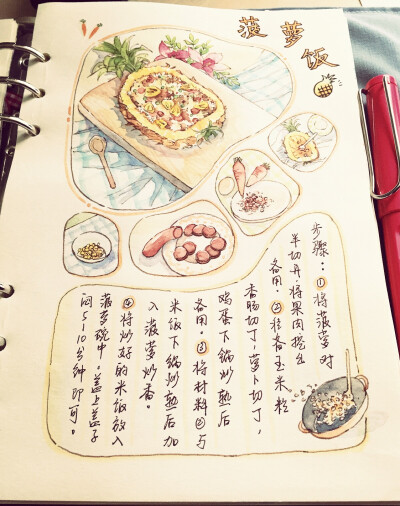 菠萝饭
步骤：①将菠萝对
半切开，将果肉挖出
备用。②将各玉米粒
香肠切丁，萝卜切丁，
鸡蛋下锅炒熟后
备用。③将材料②与
米饭下锅炒熟后加
入菠萝炒香。
④将炒好的米饭放入
菠萝碗中，盖上盖子
闷5-10分钟即可。